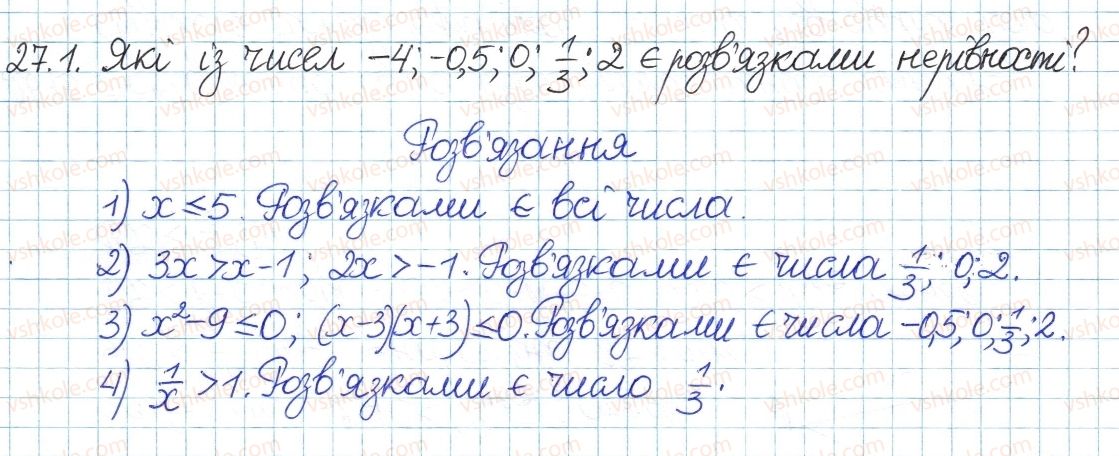 27.1. Які із чисел -4; -0,5; 0; 1/3; 2 є розв'язками нерівності?
Розв'язання
1) x ≤ 5. Розв'язками є всі числа.
2) 3x > x - 1; 2x > -1. Розв'язками є числа 1/3; 0; 2.
3) x² - 9 ≤ 0; (x-3)(x+3) ≤ 0. Розв'язками є числа -0,5; 0; 1/3; 2.
4) 1/x > 1. Розв'язками є число 1/3.